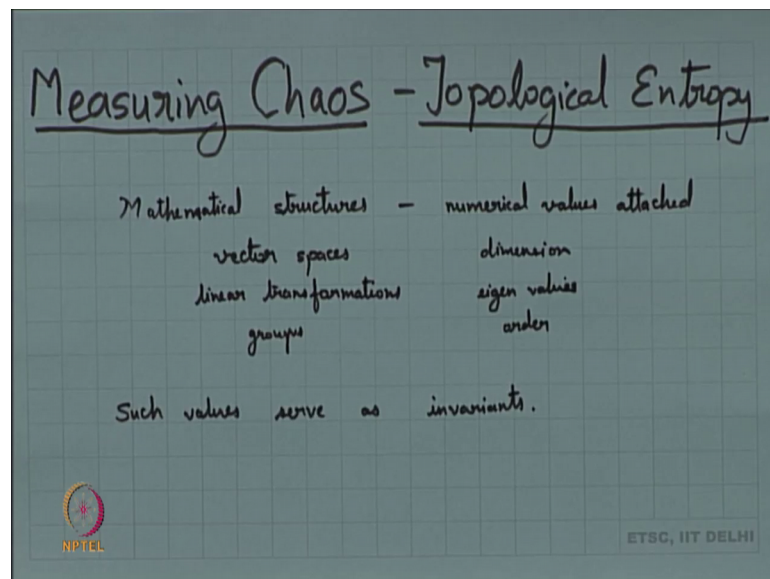 Measuring Chaos - Topological Entropy
Mathematical structures - numerical values attached
vector spaces dimension
linear transformations eigen values
groups order
Such values serve as invariants.
NPTEL
ETSC, IIT DELHI